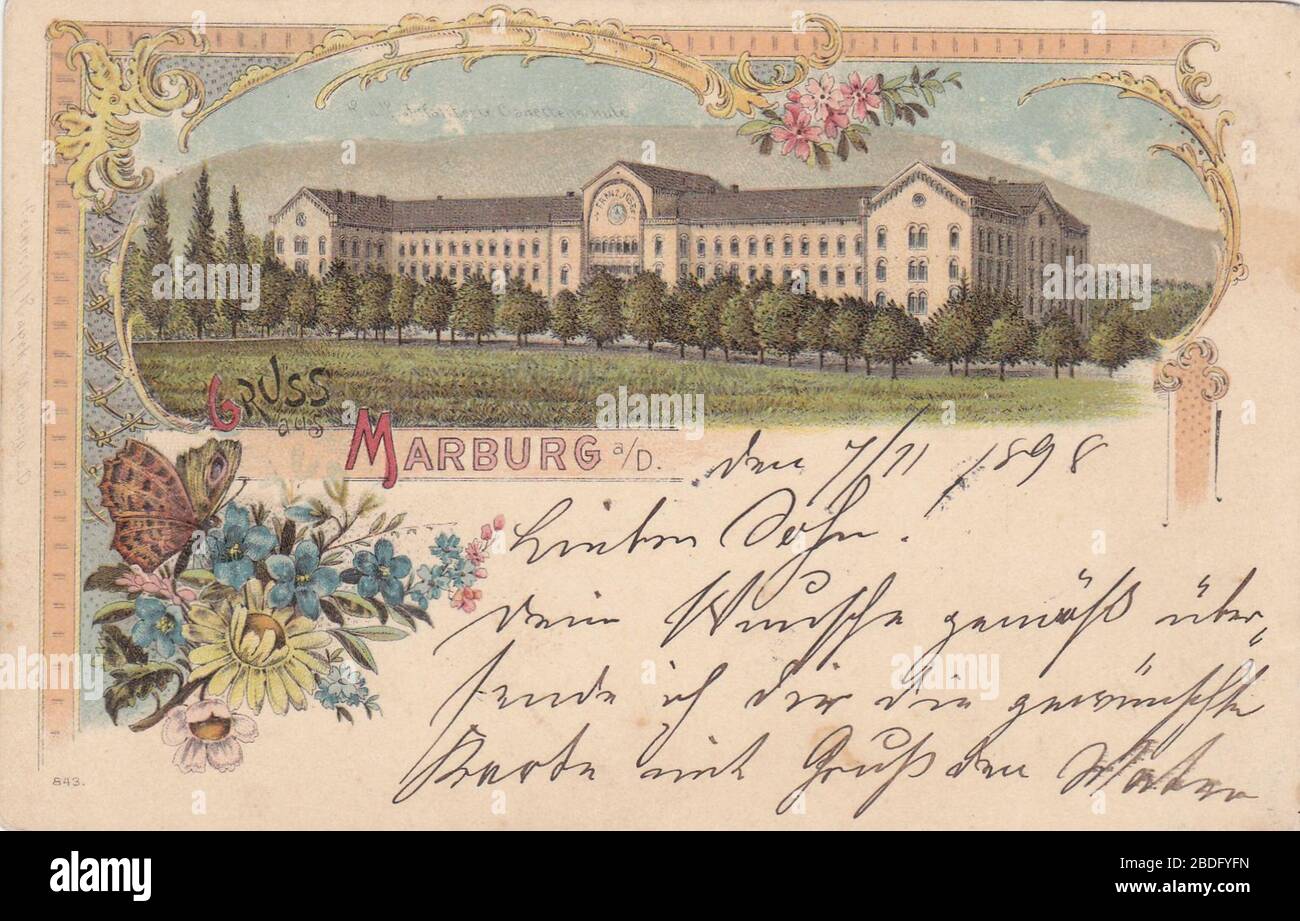 Infanterie Cadettenschule
FRANZ JOSEF
GRUSS
aus
MARBURG a/D.
den 7/11 1898
Lieber Sohn!
Dein Wunsche gemäß über„
sende ich dir die gewünschte
Karte mit Gruß den Vater
843.
alamy
Image ID: 2BDFYFN
www.alamy.com